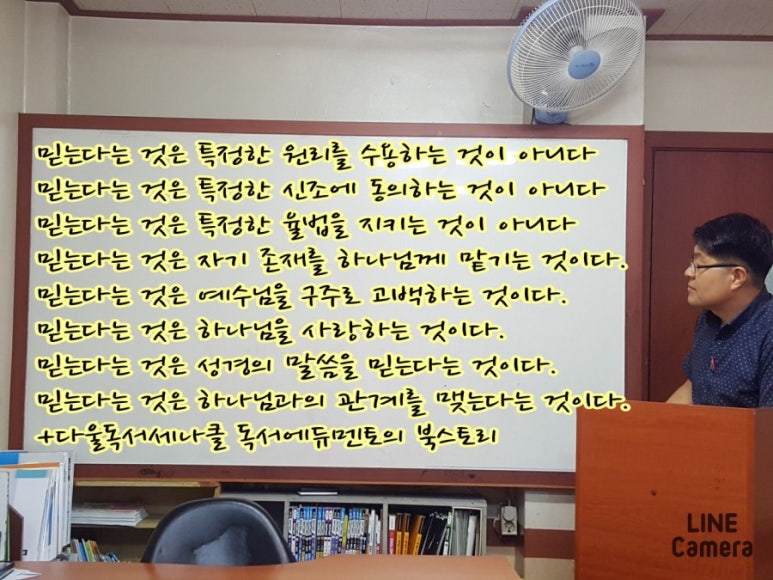 믿는다는 것은 특정한 원리를 수용하는 것이 아니다
믿는다는 것은 특정한 신조에 동의하는 것이 아니다
믿는다는 것은 특정한 율법을 지키는 것이 아니다
믿는다는 것은 자기 존재를 하나님께 맡기는 것이다.
믿는다는 것은 예수님을 구주로 고백하는 것이다.
믿는다는 것은 하나님을 사랑하는 것이다.
믿는다는 것은 성경의 말씀을 믿는다는 것이다.
믿는다는 것은 하나님과의 관계를 맺는다는 것이다.
+다울독서세나클 독서에듀멘토의 북스토리
LINE
Camera